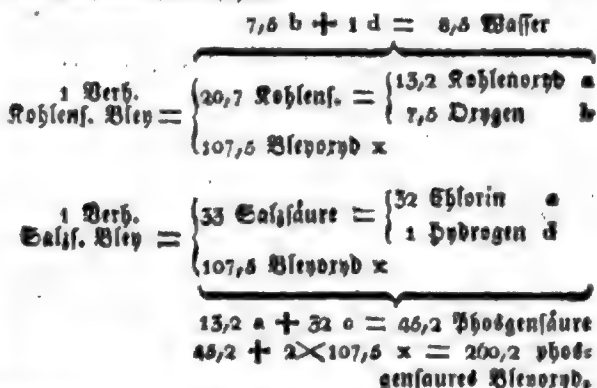 7,5 b + 1 d = 8,5 Wasser
1 Verh.
Kohlens. Bley = {20,7 Kohlens. = {13,2 Kohlenoxyd a
7,5 Oxygen b
107,5 Bleyoxyd x
1 Verh.
Salzs. Bley = {33 Salzsäure = {32 Chlorin c
1 Hydrogen d
107,5 Bleyoxyd x
13,2 a + 32 c = 45,2 Phosgensäure
45,2 + 2×107,5 x = 260,2 phos-
gensaures Bleyoxyd.